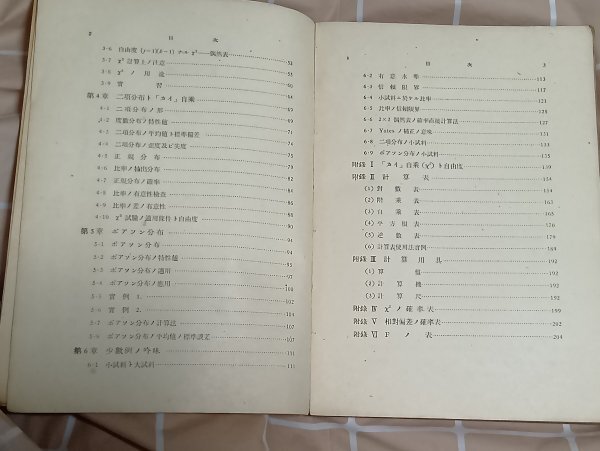 2 目次
3・6 自由度 (j−1)(k−1) ナル χ²──偶然表 51
3・7 χ² 計算上ノ注意
3・8 χ² ノ用途
3・9 實習
第4章 二項分布ト「カイ」自乘
4・1 二項分布ノ形
4・2 度數分布ノ特性
4・3 二項分布ノ平均値ト標準偏差
4・4 二項分布ノ歪度及ビ尖度
4・5 正規分布
4・6 比率ノ抽出分布
4・7 正規分布ノ確率
4・8 比率ノ有意性檢查
4・9 比率ノ差ノ有意性
4・10 χ² 試驗ノ適用條件ト自由度
第5章 ポアソン分布 94
5・1 ポアソン分布 94
5・2 ポアソン分布ノ特性 95
5・3 ポアソン分布ノ適用 97
5・4 ポアソン分布ノ應用 100
5・5 實例 1. 102
5・6 實例 2. 104
5・7 ポアソン分布ノ計算法 107
5・8 ポアソン分布ノ平均値ノ標準誤差
第6章 少數例ノ吟味 111
6・1 小試料ト大試料 111
目次 3
6・2 有意水準 113
6・3 信賴限界
6・4 小試料ニ於ケル比率
6・5 比率ノ信賴限界
6・6 2×2 偶然表ノ確率直接計算法 127
6・7 Yates ノ補正ノ意味 131
6・8 二項分布ノ小試料
6・9 ポアソン分布ノ小試料
附錄 Ⅰ 「カイ」自乘 (χ²) ト自由度 139
附錄 Ⅱ 計算表 154
(1) 對數表 154
(2) 階乘表 163
(3) 自乘表 165
(4) 平方根表
(5) 逆數表 184
(6) 計算表使用法實例
附錄 Ⅲ 計算用具 192
(1) 算盤 192
(2) 計算機 192
(3) 計算尺 192
附錄 Ⅳ χ² ノ確率表 199
附錄 Ⅴ 相對偏差ノ確率表 202
附錄 Ⅵ F ノ表 204